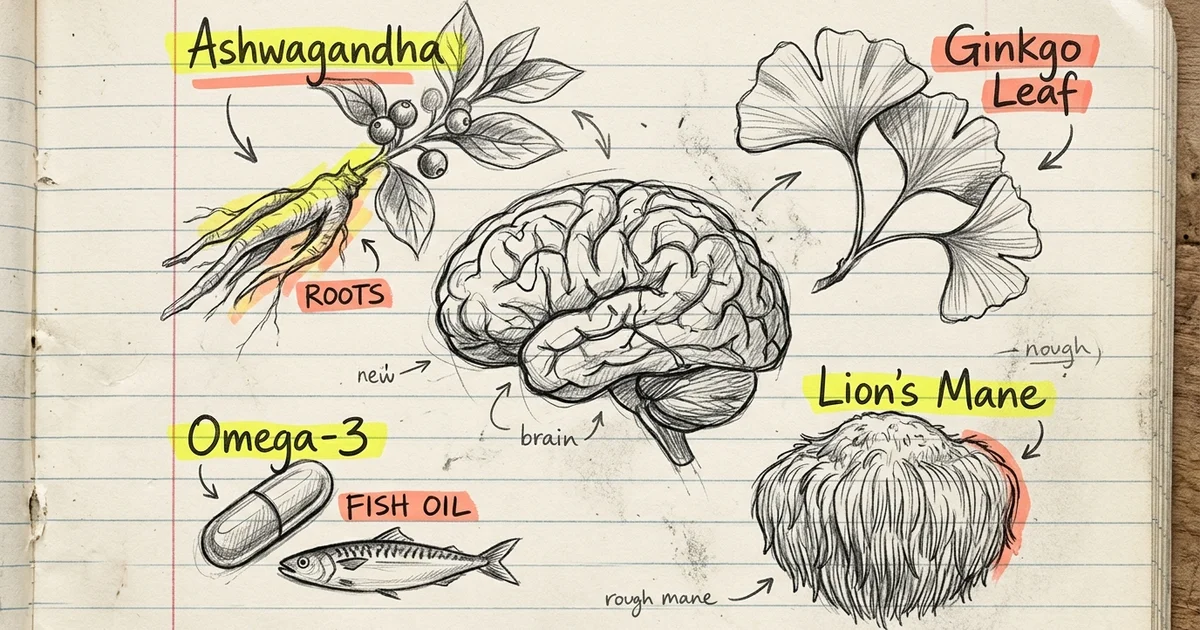 Ashwagandha
Ginkgo
Leaf
ROOTS
new
brain
nough
Lion's Mane
Omega-3
FISH OIL
rough mane